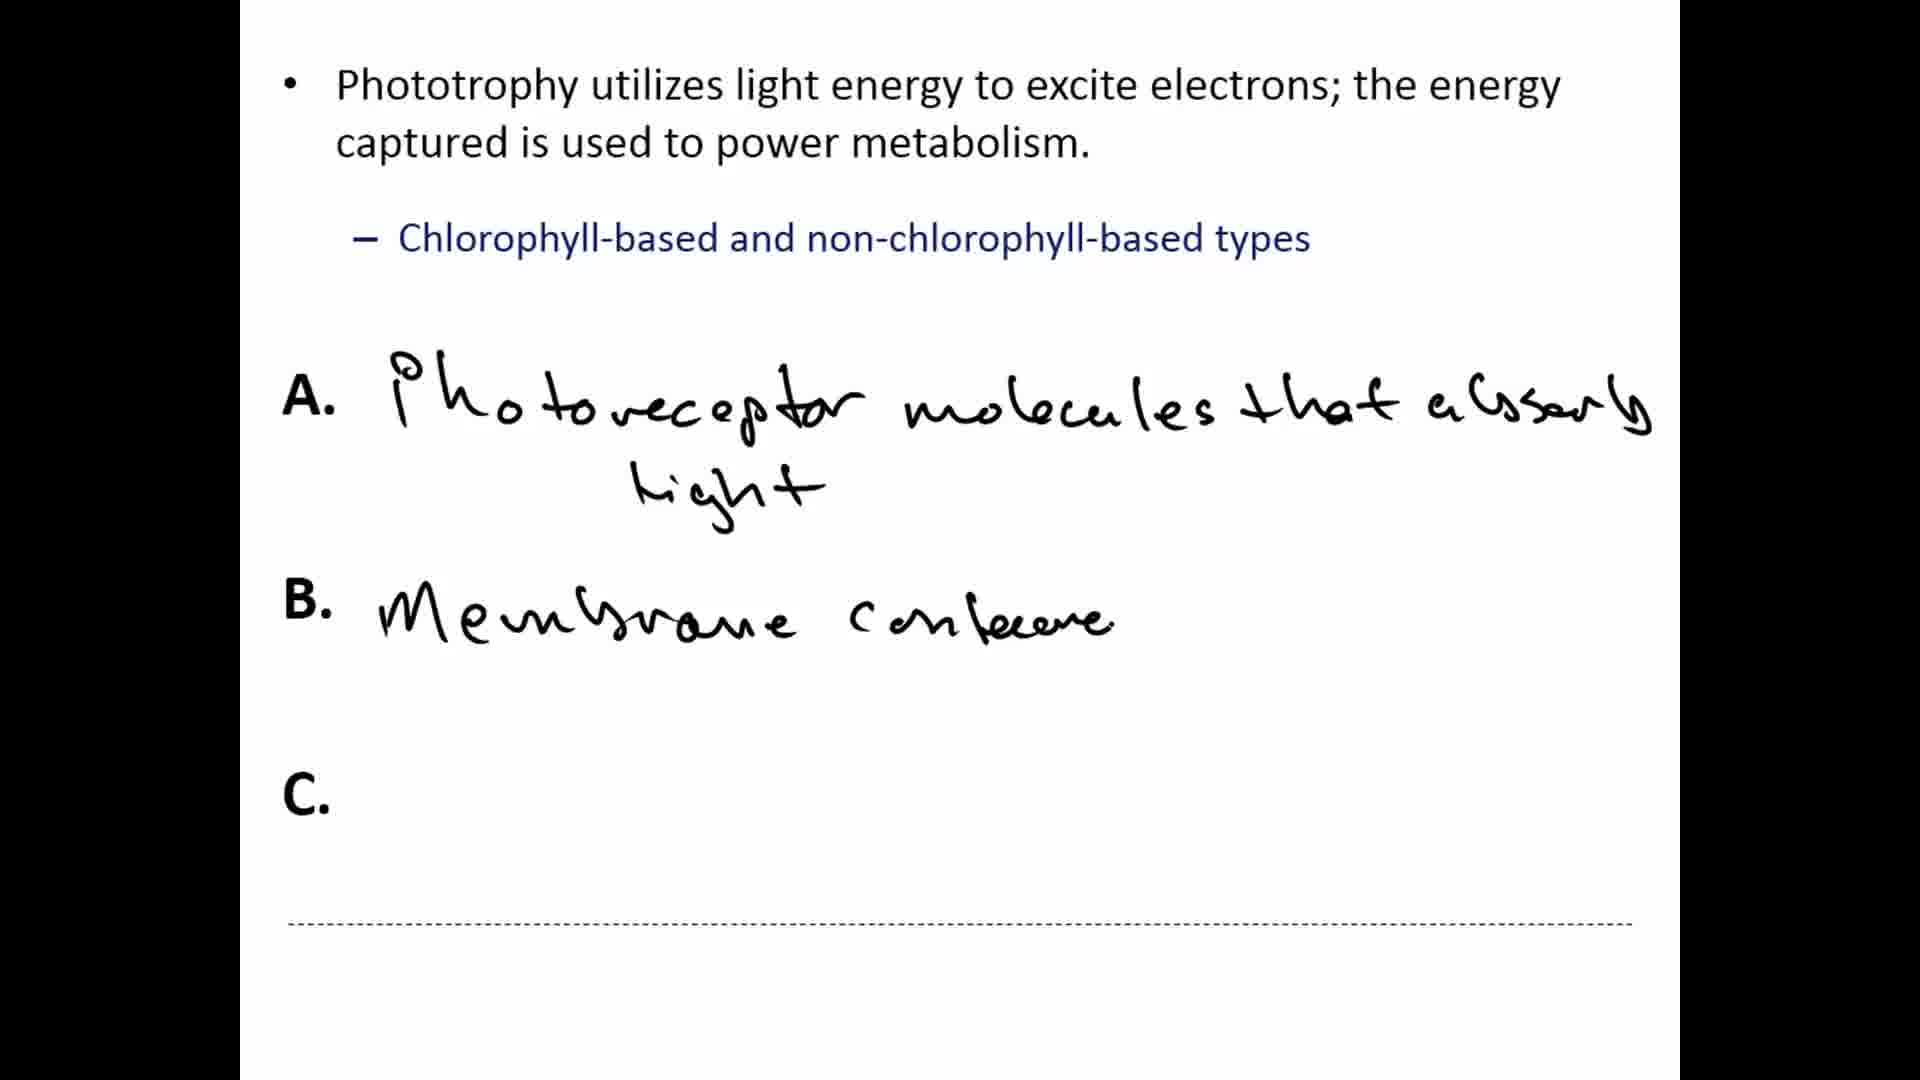 • Phototrophy utilizes light energy to excite electrons; the energy
captured is used to power metabolism.
– Chlorophyll-based and non-chlorophyll-based types
A. Photoreceptor molecules that absorb
light
B. Membrane
C.